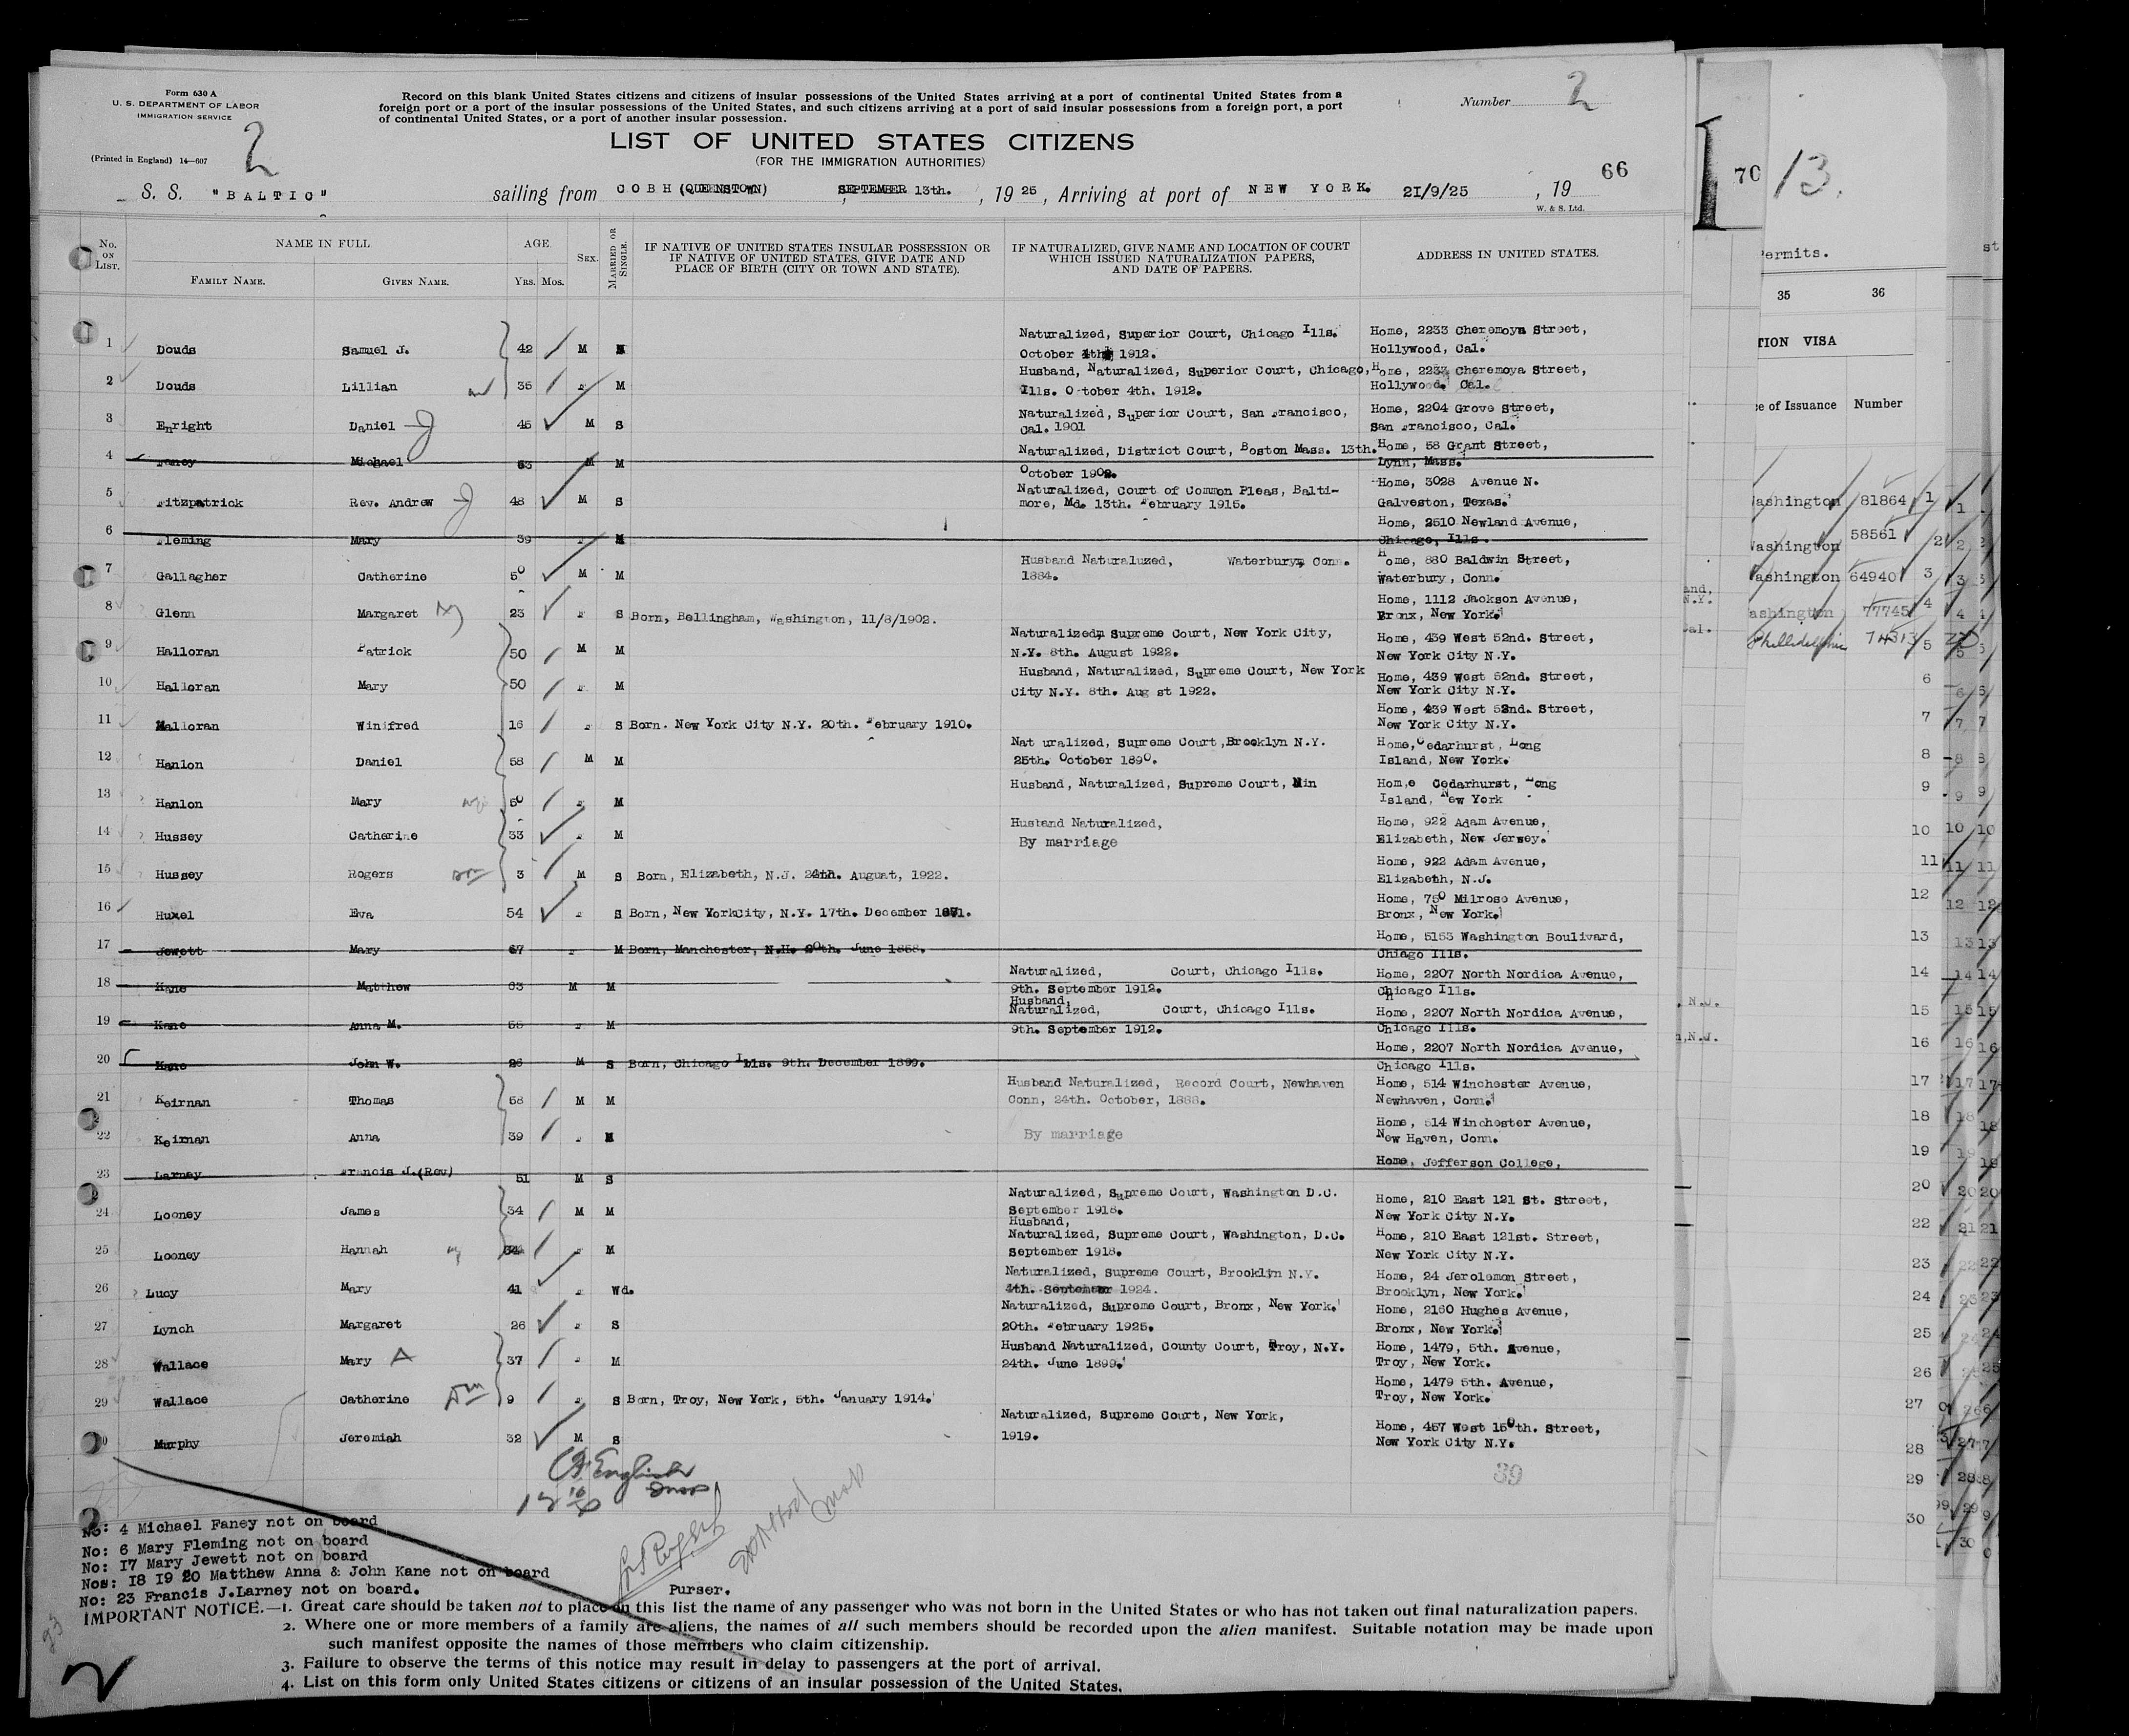 Form 630 A
U. S. DEPARTMENT OF LABOR
IMMIGRATION SERVICE
(Printed in England) 14—607
2
Record on this blank United States citizens and citizens of insular possessions of the United States arriving at a port of continental United States from a
foreign port or a port of the insular possessions of the United States, and such citizens arriving at a port of said insular possessions from a foreign port, a port
of continental United States, or a port of another insular possession.
Number 2
LIST OF UNITED STATES CITIZENS
(FOR THE IMMIGRATION AUTHORITIES)
66
S. S. "BALTIC" sailing from COBH (QUEENSTOWN) SEPTEMBER 13th. , 19 25 , Arriving at port of NEW YORK. 21/9/25 , 19
W. & S. Ltd.
No. ON LIST. NAME IN FULL AGE SEX. MARRIED OR SINGLE. IF NATIVE OF UNITED STATES INSULAR POSSESSION OR IF NATIVE OF UNITED STATES, GIVE DATE AND PLACE OF BIRTH (CITY OR TOWN AND STATE). IF NATURALIZED, GIVE NAME AND LOCATION OF COURT WHICH ISSUED NATURALIZATION PAPERS, AND DATE OF PAPERS. ADDRESS IN UNITED STATES.
FAMILY NAME. GIVEN NAME. YRS. MOS.
Naturalized, Superior Court, Chicago Ills. Home, 2233 Cheremoya Street,
1 Douds Samuel J. 42 M M October 4th 1912. Hollywood, Cal.
Husband, Naturalized, Superior Court, Chicago, Home, 2233 Cheremoya Street,
2 Douds Lillian 35 F M Ills. October 4th. 1912. Hollywood. Cal.
Naturalized, Superior Court, San Francisco, Home, 2204 Grove Street,
3 Enright Daniel 45 M S Cal. 1901 San Francisco, Cal.
Naturalized, District Court, Boston Mass. 13th. Home, 58 Grant Street,
4 Faney Michael 53 M M October 1902. Lynn, Mass.
Naturalized, Court of Common Pleas, Balti- Home, 3028 Avenue N.
5 Fitzpatrick Rev. Andrew 48 M S more, Md. 13th. February 1915. Galveston, Texas.
Home, 2510 Newland Avenue,
6 Fleming Mary 39 F M Chicago, Ills.
Husband Naturaluzed, Waterburym Conn. Home, 880 Baldwin Street,
7 Gallagher Catherine 50 M M 1884. Waterbury, Conn.
Home, 1112 Jackson Avenue,
8 Glenn Margaret 23 F S Born, Bellingham, Washington, 11/8/1902. Bronx, New York.
Naturalized, Supreme Court, New York City, Home, 439 West 52nd. Street,
9 Halloran Patrick 50 M M N.Y. 8th. August 1922. New York City N.Y.
Husband, Naturalized, Supreme Court, New York Home, 439 West 52nd. Street,
10 Halloran Mary 50 F M City N.Y. 8th. Aug st 1922. New York City N.Y.
Home, 439 West 52nd. Street,
11 Halloran Winifred 16 F S Born. New York City N.Y. 20th. February 1910. New York City N.Y.
Nat uralized, Supreme Court, Brooklyn N.Y. Home, Cedarhurst, Long
12 Hanlon Daniel 58 M M 25th. October 1890. Island, New York.
Husband, Naturalized, Supreme Court, Home Cedarhurst, Long
13 Hanlon Mary 50 F M Island, New York
Husband Naturalized, Home, 922 Adam Avenue,
14 Hussey Catherine 33 F M By marriage Elizabeth, New Jersey.
Home, 922 Adam Avenue,
15 Hussey Rogers 3 M S Born, Elizabeth, N.J. 24th. August, 1922. Elizabeth, N.J.
Home, 750 Milrose Avenue,
16 Huxel Eva 54 F S Born, New YorkCity, N.Y. 17th. December 1871. Bronx, New York.
Home, 5153 Washington Boulivard,
17 Jewett Mary 67 F M Born, Manchester, N.H. 20th. June 1858. Chiago Ills.
Naturalized, Court, Chicago Ills. Home, 2207 North Nordica Avenue,
18 Kane Matthew 63 M M 9th. September 1912. Chicago Ills.
Husband,
Naturalized, Court, Chicago Ills. Home, 2207 North Nordica Avenue,
19 Kane Anna M. 55 F M 9th. September 1912. Chicago Ills.
Home, 2207 North Nordica Avenue,
20 Kane John W. 26 M S Born, Chicago Ills. 9th. December 1899. Chicago Ills.
Husband Naturalized, Record Court, Newhaven Home, 514 Winchester Avenue,
21 Keirnan Thomas 58 M M Conn, 24th. October, 1888. Newhaven, Conn.
Home, 514 Winchester Avenue,
22 Keirnan Anna 39 F M By marriage New Haven, Conn.
23 Larney Francis J. (Rev) 51 M S Home, Jefferson College,
Naturalized, Supreme Court, Washington D.C. Home, 210 East 121 St. Street,
24 Looney James 34 M M September 1918. New York City N.Y.
Husband,
Naturalized, Supreme Court, Washington, D.C. Home, 210 East 121st. Street,
25 Looney Hannah 34 F M September 1918. New York City N.Y.
Naturalized, Supreme Court, Brooklyn N.Y. Home, 24 Jerolemon Street,
26 Lucy Mary 41 F Wd. 4th. September 1924. Brooklyn, New York.
Naturalized, Supreme Court, Bronx, New York. Home, 2160 Hughes Avenue,
27 Lynch Margaret 26 F S 20th. February 1925. Bronx, New York.
Husband Naturalized, County Court, Troy, N.Y. Home, 1479, 5th. Avenue,
28 Wallace Mary A 37 F M 24th. June 1899. Troy, New York.
Home, 1479 5th. Avenue,
29 Wallace Catherine 9 F S Born, Troy, New York, 5th. January 1914. Troy, New York.
Naturalized, Supreme Court, New York, Home, 457 West 150th. Street,
30 Murphy Jeremiah 32 M S 1919. New York City N.Y.
English
39
No: 4 Michael Faney not on board
No: 6 Mary Fleming not on board
No: 17 Mary Jewett not on board
Nos: 18 19 20 Matthew Anna & John Kane not on board
No: 23 Francis J.Larney not on board.
Purser.
IMPORTANT NOTICE.—1. Great care should be taken not to place on this list the name of any passenger who was not born in the United States or who has not taken out final naturalization papers.
2. Where one or more members of a family are aliens, the names of all such members should be recorded upon the alien manifest. Suitable notation may be made upon
such manifest opposite the names of those members who claim citizenship.
3. Failure to observe the terms of this notice may result in delay to passengers at the port of arrival.
4. List on this form only United States citizens or citizens of an insular possession of the United States.
2
70
13.
ermits.
35 36
TION VISA
e of Issuance Number
ashington 81864 1
ashington 58561 2
ashington 64940 3
ashington 77745 4
5
6
7
8
9
10
11
12
13
14
15
16
17
18
19
20
22
23
24
25
26
27
28
29
30